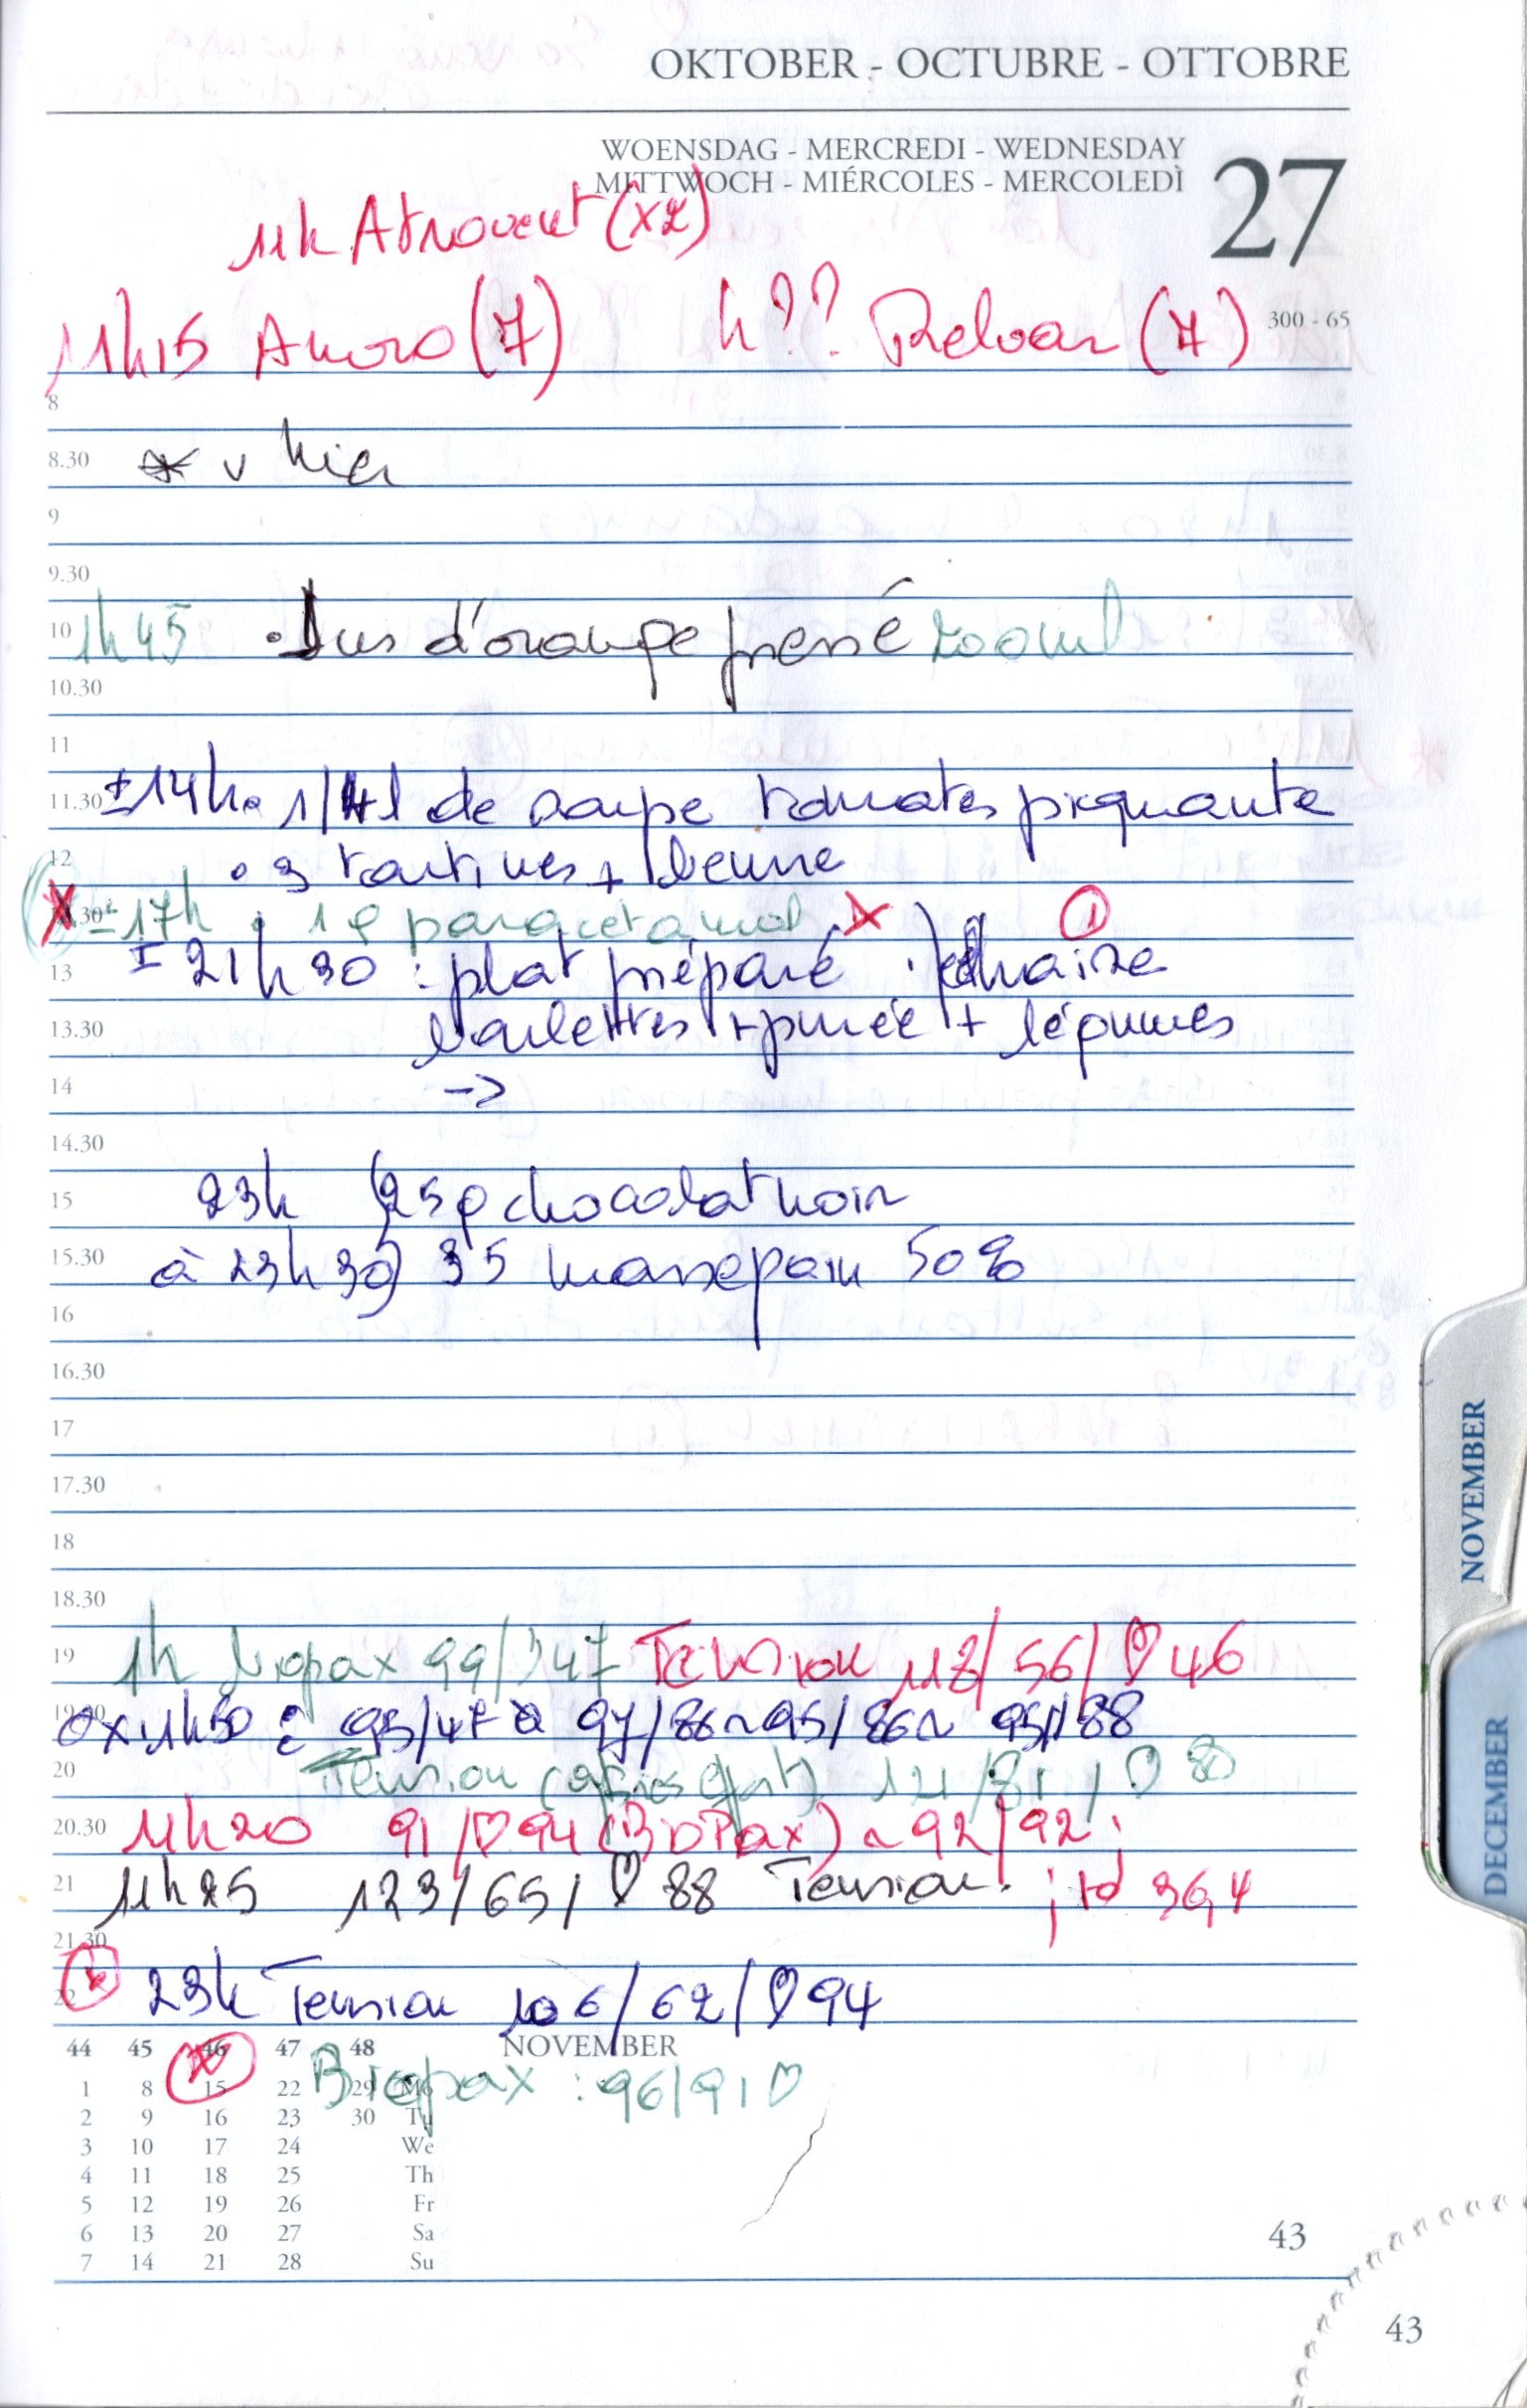 OKTOBER - OCTUBRE - OTTOBRE
WOENSDAG - MERCREDI - WEDNESDAY
MITTWOCH - MIÉRCOLES - MERCOLEDÌ
27
11h Atrovent (x2)
11h15 Anoro (7) h?? Relvar (7)
300 - 65
8
8.30 * v hier
9
9.30
10 1h45 • Jus d'orange pressé 200ml
10.30
11
11.30 ±14h • 1/4 l de soupe tomates piquante
12 • 3 tartines + beurre
±17h • 1g paracetamol x ①
13 ± 21h30 : plat préparé
13.30 boulettes + purée + légumes
14 ->
14.30
15 23h 25g chocolat noir
15.30 à 23h30 35 massepain 50%
16
16.30
17
17.30
18
18.30
19 1h Biopax 99/ 47 Tension 118/56/♡46
1h50 : 95/47 97/86~95/86~ 95/88
20 Tension 121/81/♡
20.30 11h20 91/♡94 (BioPax) ~ 92/92 ;
21 11h25 123/65/♡ 88 Tension. ; t° 36,4
21.30
22 23h Tension 106/62/♡94
44 45 46 47 48 NOVEMBER
Biopax : 96/91♡
1 8 15 22 29 Mo
2 9 16 23 30 Tu
3 10 17 24 We
4 11 18 25 Th
5 12 19 26 Fr
6 13 20 27 Sa
7 14 21 28 Su
43
43
NOVEMBER
DECEMBER